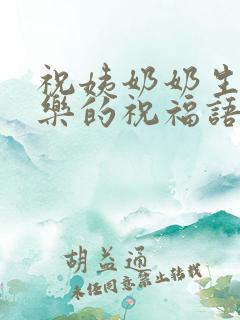 祝姨奶奶生
樂的祝福語
胡益通
未经同意禁止转载